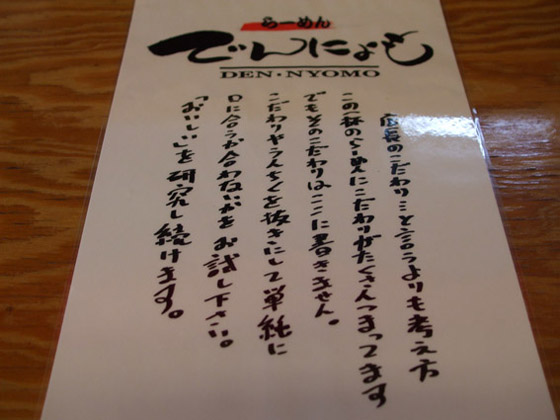 らーめん
でんにょも
DEN・NYOMO
店長のこだわり…と言うよりも考え方
この一杯のらーめんにこだわりがたくさんつまってます
でもそのこだわりはここに書きません。
こだわりやうんちくを抜きにして単純に
口に合うか合わないかをお試し下さい。
「おいしい」を研究し続けます。